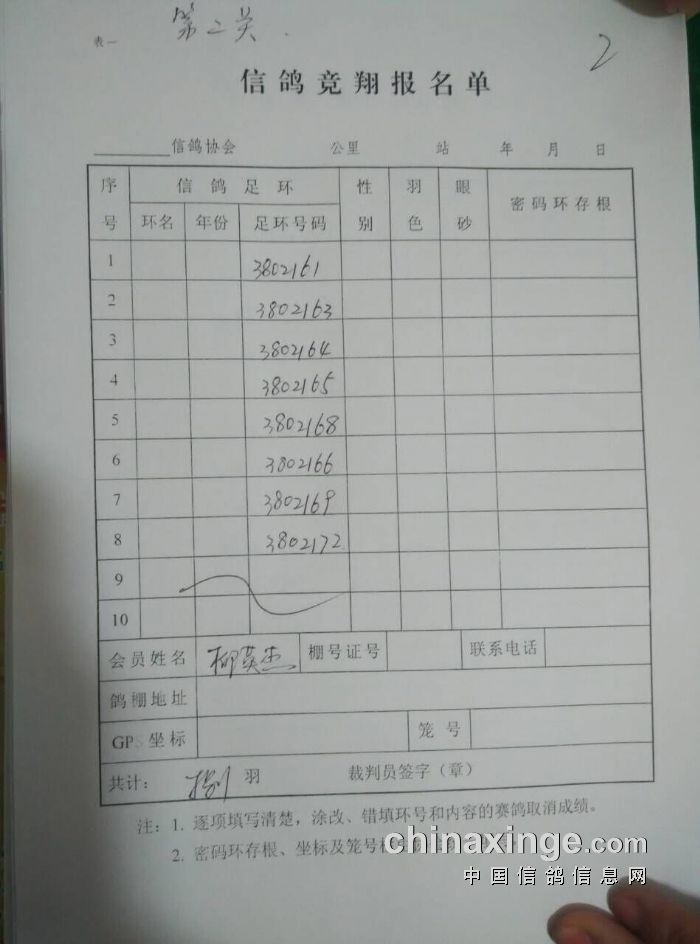 表一 第二关 2
信鸽竞翔报名单
信鸽协会 公里 站 年 月 日
序号 信鸽足环 性别 羽色 眼砂 密码环存根
环名 年份 足环号码
1 3802161
2 3802163
3 3802164
4 3802165
5 3802168
6 3802166
7 3802169
8 3802172
9
10
会员姓名 柳英杰 棚号证号 联系电话
鸽棚地址
GPS坐标 笼号
共计: 捌 羽 裁判员签字（章）
注：1. 逐项填写清楚，涂改、错填环号和内容的赛鸽取消成绩。
2. 密码环存根、坐标及笼号
chinaxinge.com
中国信鸽信息网